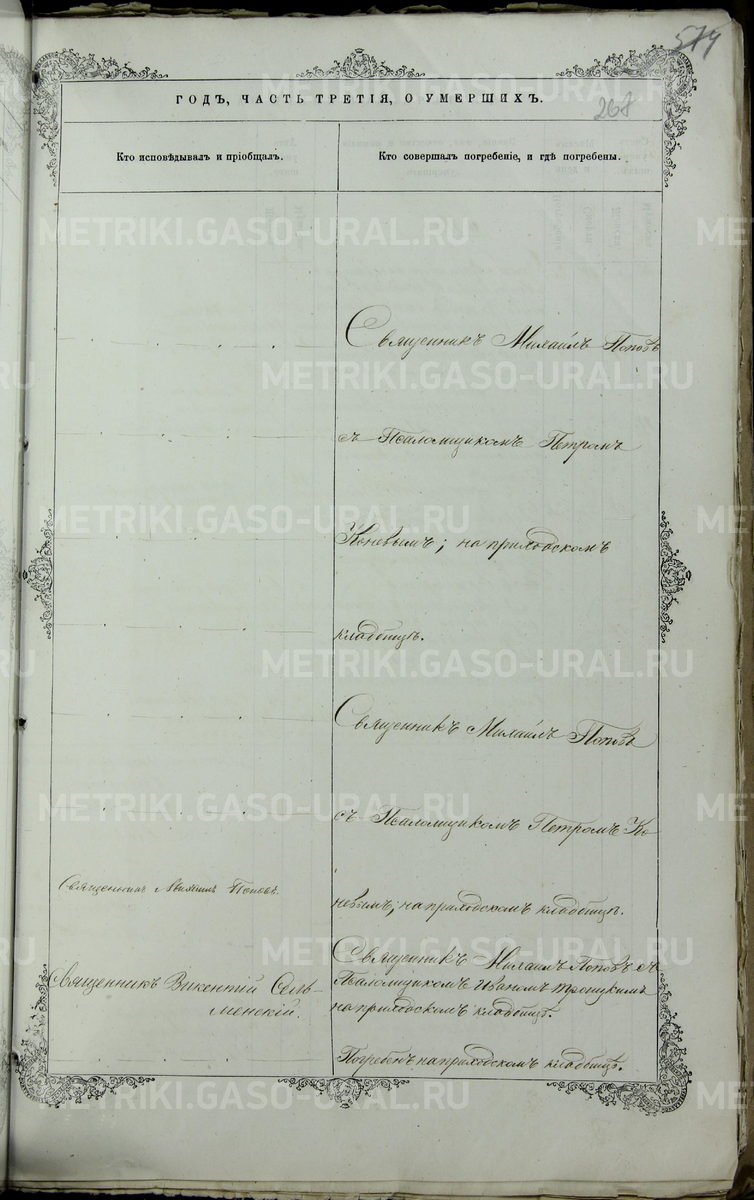 574
268
ГОДЪ, ЧАСТЬ ТРЕТІЯ, О УМЕРШИХЪ.
Кто исповѣдывалъ и пріобщалъ.
Кто совершалъ погребеніе, и гдѣ погребены.
Священникъ Михаилъ Поповъ
съ Псаломщикомъ Петромъ
Коневымъ; на приходскомъ
кладбищѣ.
Священникъ Михаилъ Поповъ
съ Псаломщикомъ Петромъ Ко
невымъ; на приходскомъ кладбищѣ.
Священникъ Михаилъ Поповъ.
Священникъ Михаилъ Поповъ съ
Псаломщикомъ Иваномъ Троицкимъ
на приходскомъ кладбищѣ.
Священникъ Викентій Сель-
менскій.
Погребенъ на приходскомъ кладбищѣ.
METRIKI.GASO-URAL.RU